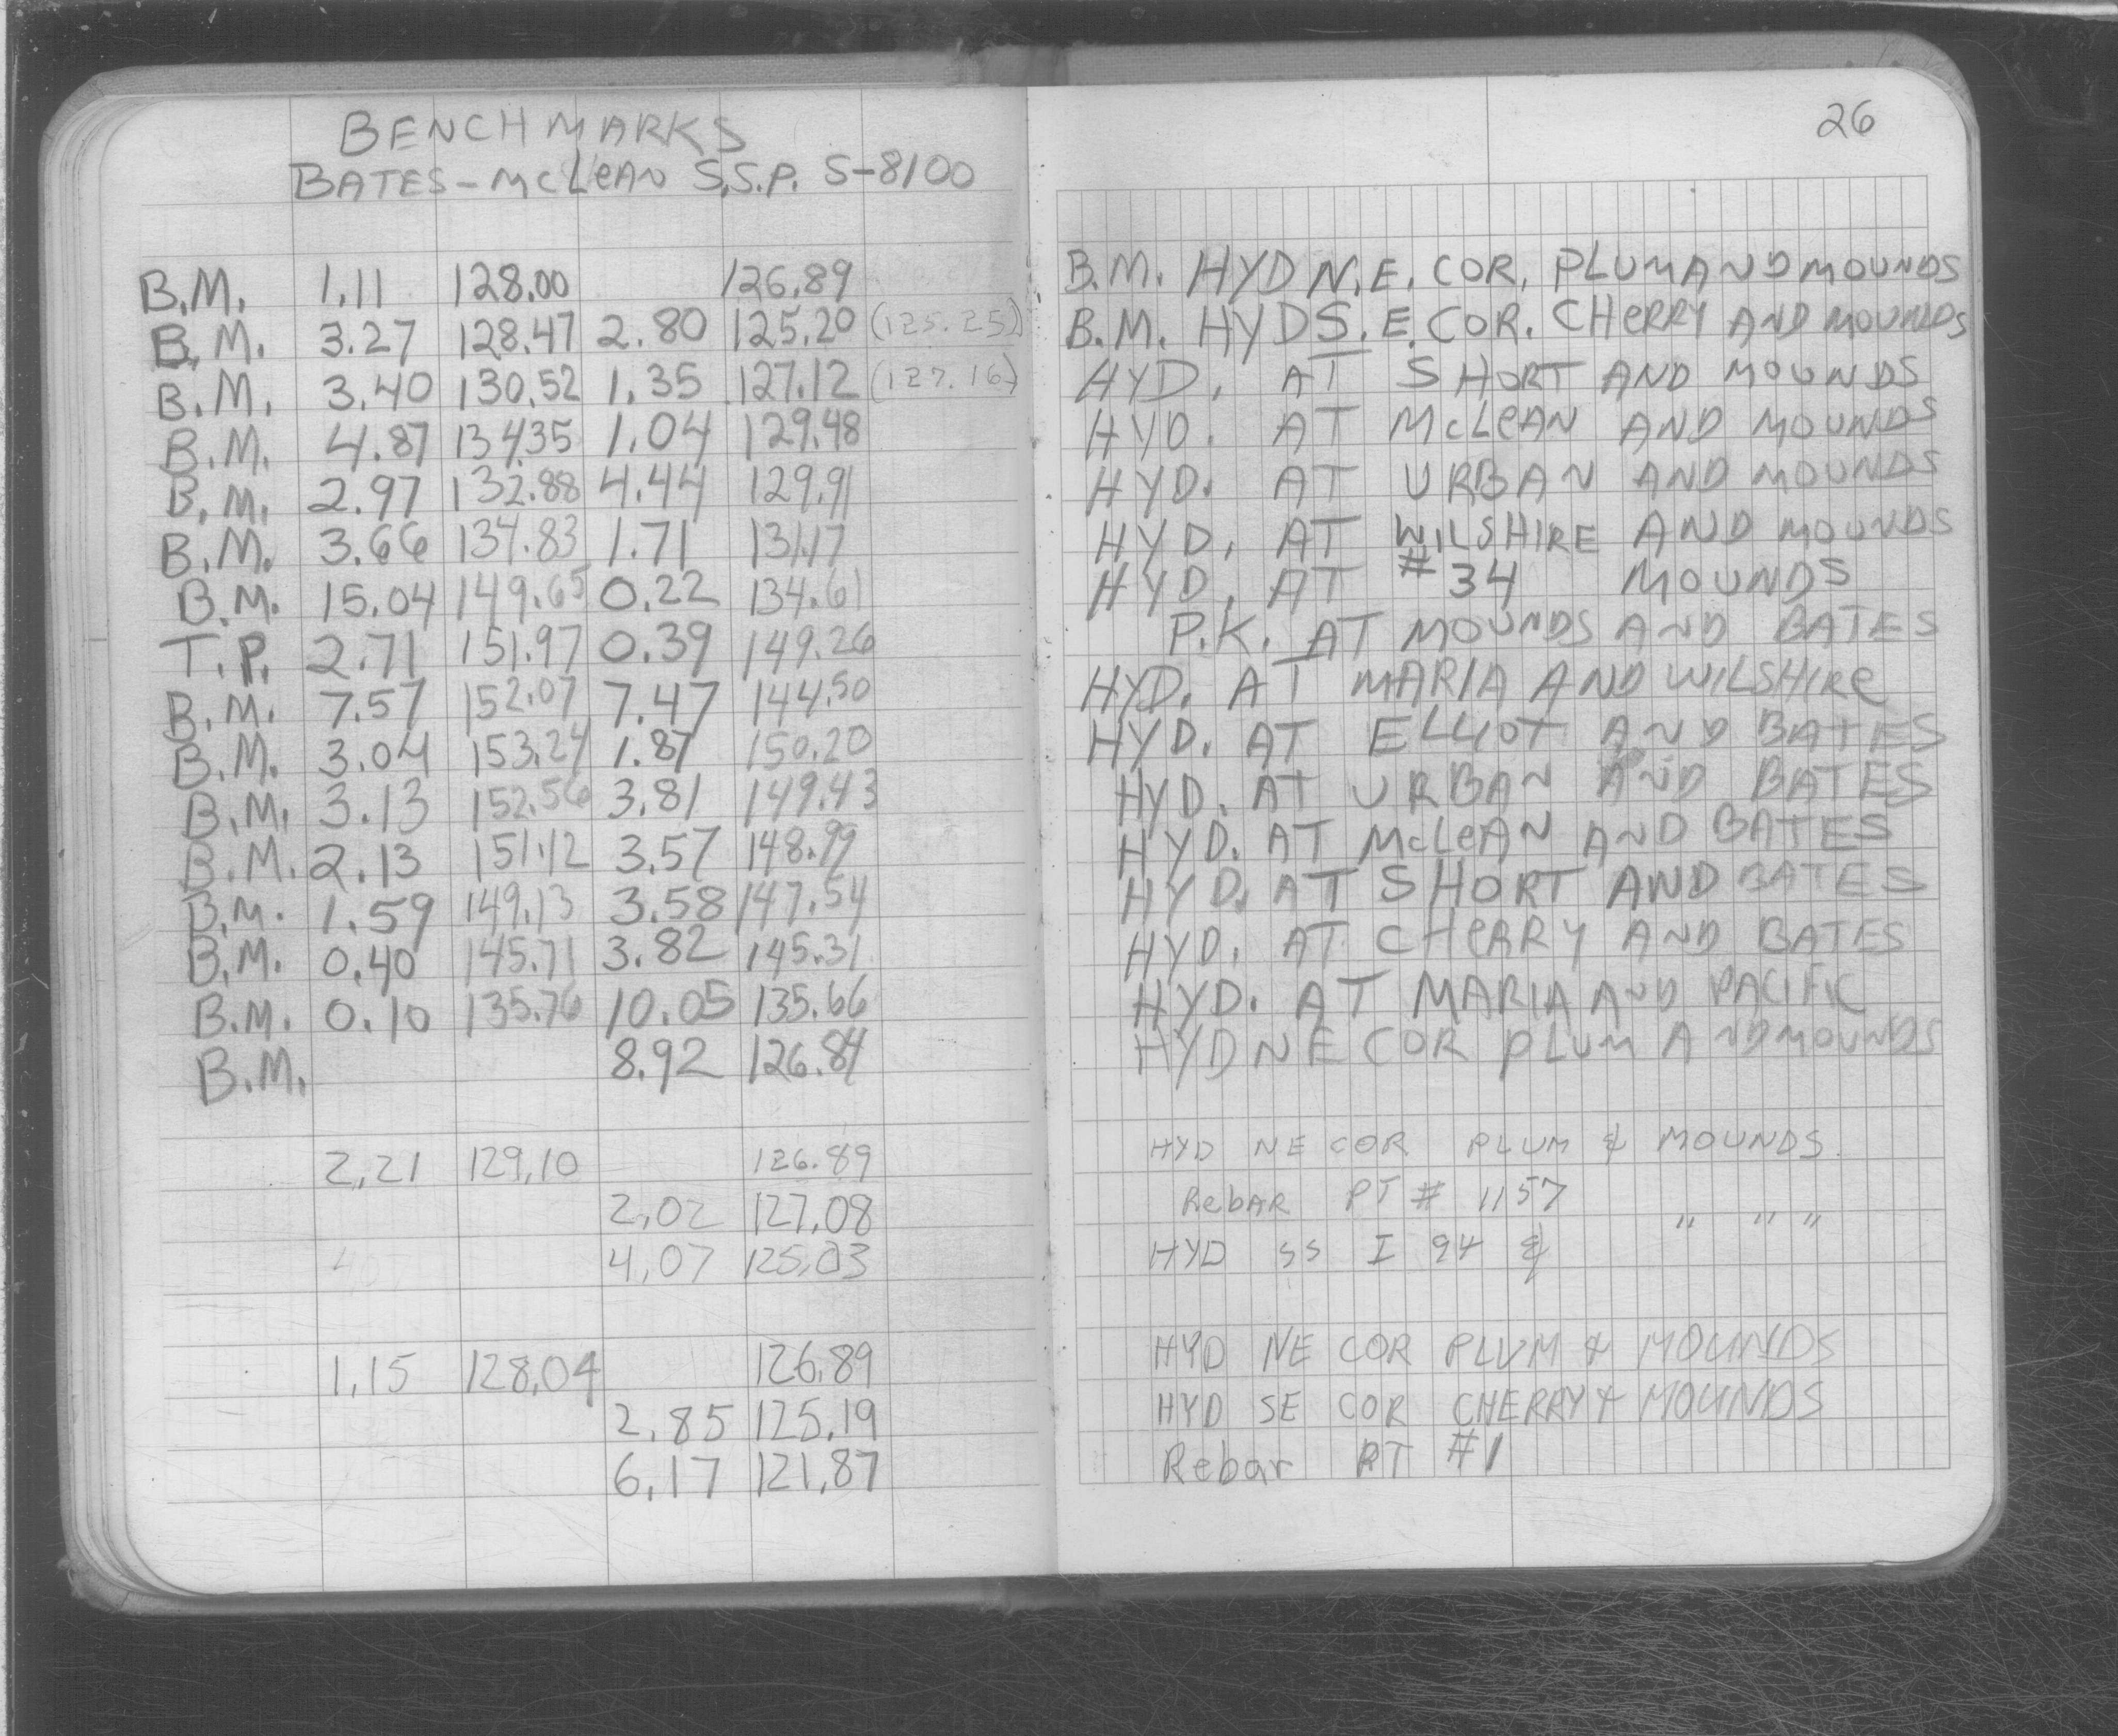 26
BENCHMARKS
BATES-McLeAN S.S.P. S-8100
B.M. 1.11 128.00 126.89 B.M. HYD N.E. COR. PLUM AND MOUNDS
B.M. 3.27 128.47 2.80 125.20 (125.25) B.M. HYD S.E. COR. CHeRRY AND MOUNDS
B.M. 3.40 130.52 1.35 127.12 (127.16) HYD. AT SHORT AND MOUNDS
B.M. 4.87 134.35 1.04 129.48 HYD. AT McLeAN AND MOUNDS
B.M. 2.97 132.88 4.44 129.91 HYD. AT URBAN AND MOUNDS
B.M. 3.66 134.83 1.71 131.17 HYD. AT WILSHIRE AND MOUNDS
B.M. 15.04 149.65 0.22 134.61 HYD. AT #34 MOUNDS
T.P. 2.71 151.97 0.39 149.26 P.K. AT MOUNDS AND BATES
B.M. 7.57 152.07 7.47 144.50 HYD. AT MARIA AND WILSHIRe
B.M. 3.04 153.24 1.87 150.20 HYD. AT ELLIOT AND BATES
B.M. 3.13 152.56 3.81 149.43 HYD. AT URBAN AND BATES
B.M. 2.13 151.12 3.57 148.99 HYD. AT McLeAN AND BATES
B.M. 1.59 149.13 3.58 147.54 HYD. AT SHORT AND BATES
B.M. 0.40 145.71 3.82 145.31 HYD. AT CHeRRY AND BATES
B.M. 0.10 135.76 10.05 135.66 HYD. AT MARIA AND PACIFIC
B.M. 8.92 126.84 HYD NE COR PLUM AND MOUNDS
2.21 129.10 126.89 HYD NE COR PLUM & MOUNDS.
2.02 127.08 RebAR PT # 1157
4.07 125.03 HYD SS I 94 & " " "
1.15 128.04 126.89 HYD NE COR PLUM & MOUNDS
2.85 125.19 HYD SE COR CHERRY & MOUNDS
6.17 121.87 Rebar PT #1